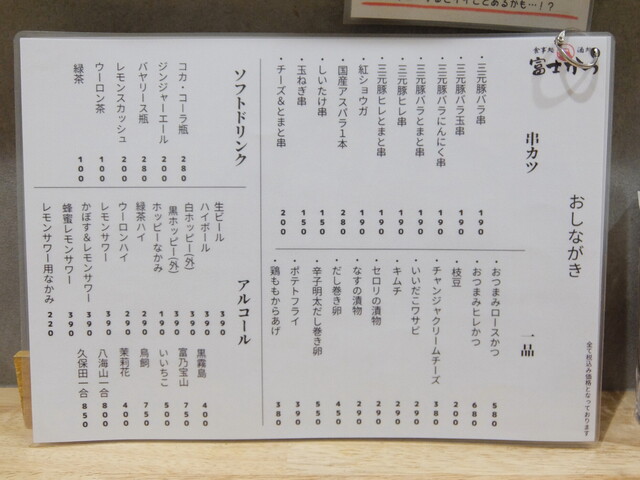 とあるかも…!?
食事処 酒肴
富士かつ
おしながき
全て税込み価格となっております
串カツ
・三元豚バラ串 190
・三元豚バラ玉串 190
・三元豚バラにんにく串 190
・三元豚バラとまと串 190
・三元豚ヒレ串 190
・三元豚ヒレとまと串 190
・紅ショウガ 190
・国産アスパラ1本 280
・しいたけ串 150
・玉ねぎ串 150
・チーズ＆とまと串 200
一品
・おつまみロースかつ 580
・おつまみヒレかつ 680
・枝豆 200
・チャンジャクリームチーズ 380
・いいだこワサビ 290
・キムチ 290
・セロリの漬物 290
・なすの漬物 290
・だし巻き卵 450
・辛子明太だし巻き卵 550
・ポテトフライ 390
・鶏ももからあげ 380
ソフトドリンク
コカ・コーラ瓶 280
ジンジャーエール 200
バヤリース瓶 280
レモンスカッシュ 200
ウーロン茶 100
緑茶 100
アルコール
生ビール 390
ハイボール 390
白ホッピー(外) 390
黒ホッピー(外) 390
ホッピーなかみ 190
緑茶ハイ 290
ウーロンハイ 290
レモンサワー 390
かぼす＆レモンサワー 390
蜂蜜レモンサワー 390
レモンサワー用なかみ 220
黒霧島 400
富乃宝山 750
いいちこ 500
鳥飼 750
茉莉花 400
八海山一合 800
久保田一合 850